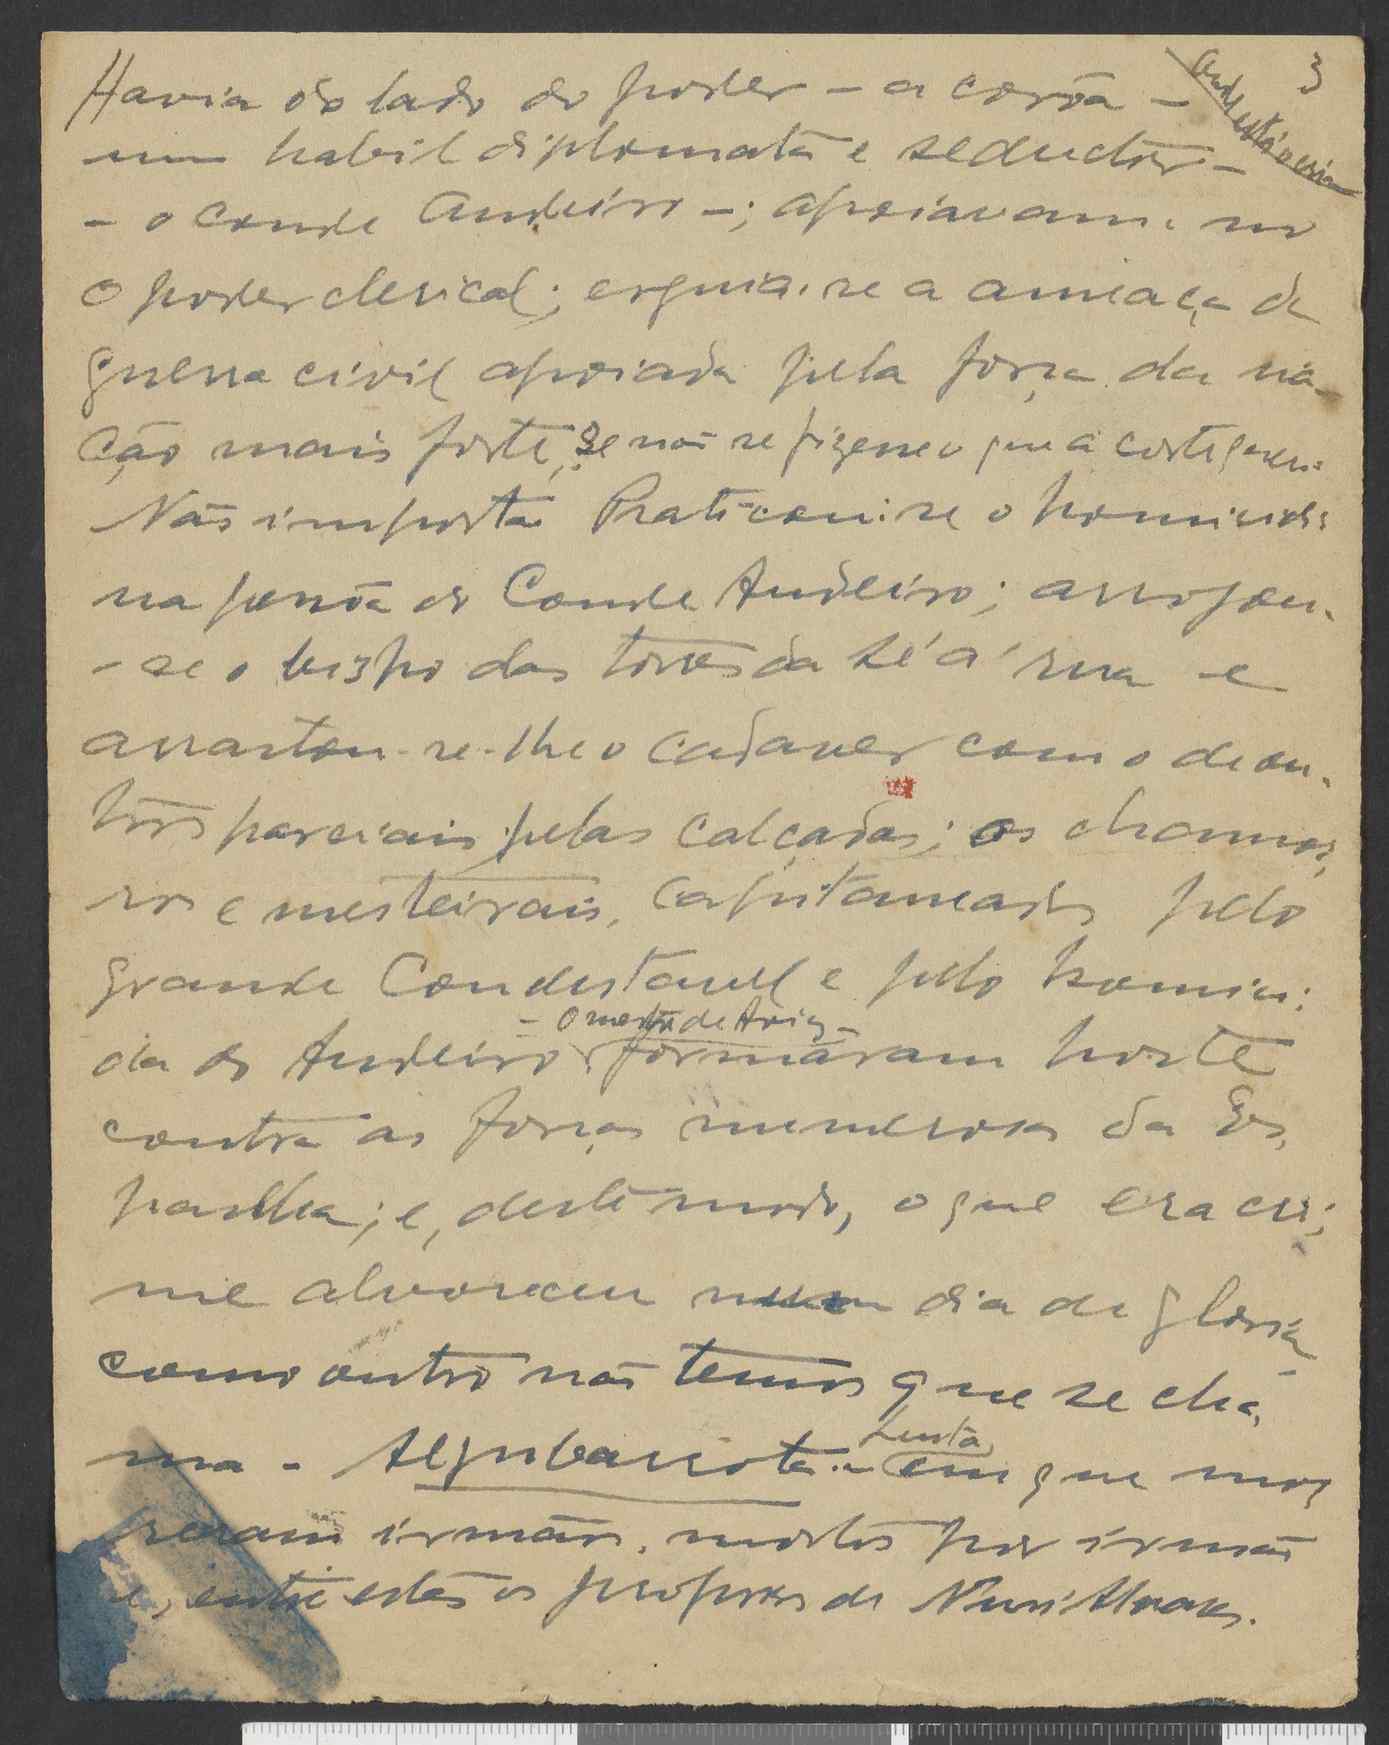 3
Havia do lado do poder - a corôa -
um habil diplomata e seductor -
- o conde Andeiro -; apoiavam-no
o poder clerical; erguia-se a ameaça da
guerra civil apoiada pela força da na-
ção mais forte, se não se fizesse o que a corte
Não importa. Praticou-se o homicidio
na pessôa do Conde Andeiro; arrojou-
-se o bispo das torres da Sé á rua e
arrastou-se-lhe o cadaver como o de ou-
tros parciais pelas calçadas; os chamor-
ros e mesteirais, capitaneados pelo
grande Condestavel e pelo homici-
- O mestre de Aviz -
da do Andeiro, formáram hoste
contra as forças numerosas da Es-
panha; e, deste modo, o que era cri-
me alvoreceu num dia de gloria
como outro não temos que se cha-
ma - Aljubarrota - luta
em que mor-
reram irmãos, mortos por irmãos
e, entre estes os proprios de Nun'Alvares.